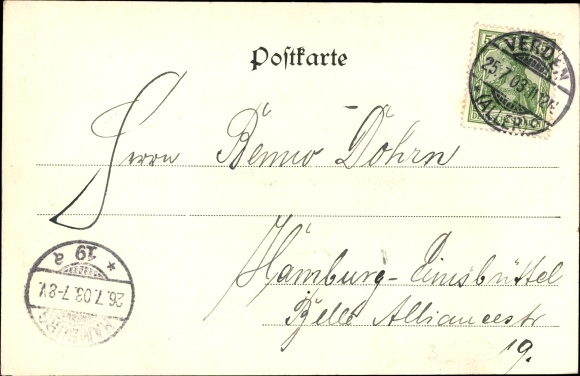 Postkarte
5
VERDEN
25.7.03.
(ALLER)
Herrn Benno Dohrn
Hamburg-Eimsbüttel
Belle Alliancestr
19.
* 19 a
26.7.03.7-8V.
HAMBURG